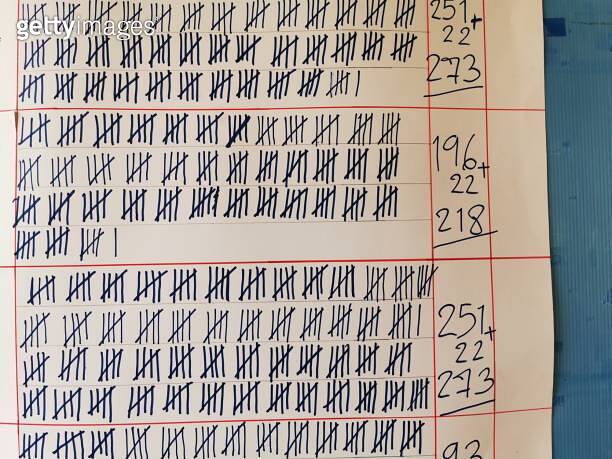 gettyimages
251+
22
273
196+
22
218
251+
22
273
93